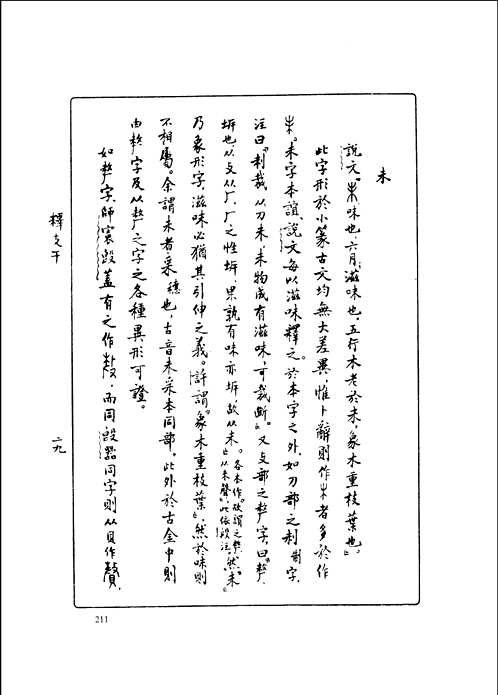 未
說文「未味也，六月滋味也，五行木老於未，象木重枝葉也」。
此字形於小篆古文均無大差異，惟卜辭則作者多於作
未字本誼，說文每以滋味釋之。於本字之外，如刀部之制字，
注曰「利裁，从刀未，未物成有滋味，可裁斷」。又攴部之𠩺字，曰「𠩺，
坼也，从攴从厂，厂之性坼，果孰有味亦坼，故从未」。各本作「故謂之𠩺，从未聲」，此依段注。然「未」
乃象形字，滋味必猶其引伸之義。許謂「象木重枝葉」，然於味則
不相屬。余謂未者采穗也，古音未采本同部。此外於古金中則
由𠩺字及从𠩺之字之各種異形可證。
如𠩺字，師㝨𣪘蓋有之作，而同𣪘器同字則从貝作贅，
釋支干
二九
211